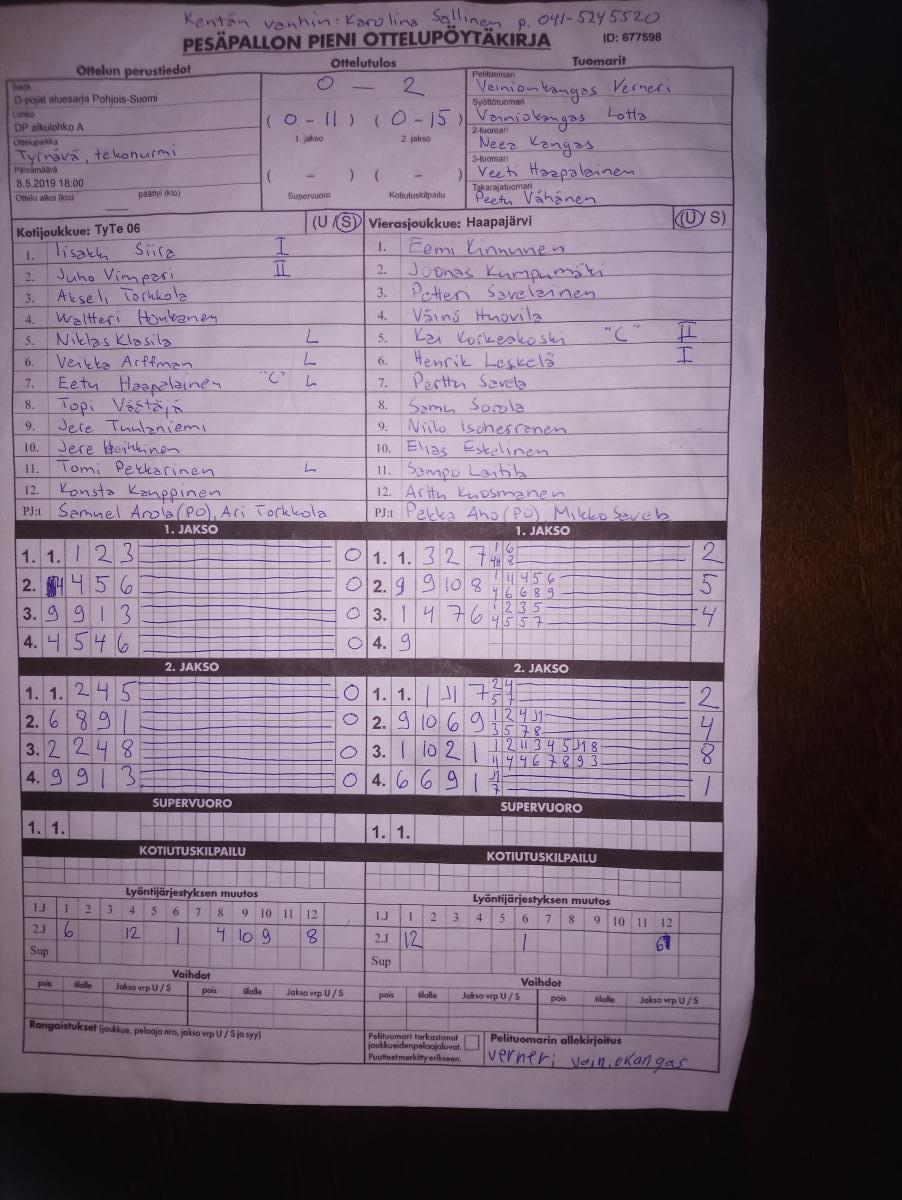 Kentän vanhin: Karolina Sallinen p. 041-5245520
PESÄPALLON PIENI OTTELUPÖYTÄKIRJA ID: 677598
Ottelun perustiedot
Sarja
D-pojat aluesarja Pohjois-Suomi
Lohko
DP alkulohko A
Ottelupaikka
Tyrnävä, tekonurmi
Päivämäärä
8.5.2019 18:00
Ottelu alkoi (klo) päättyi (klo)
Ottelutulos
0 - 2
( 0 - 11 ) ( 0 - 15 )
1. jakso 2. jakso
( - ) ( - )
Supervuoro Kotiutuskilpailu
Tuomarit
Pelituomari
Vainionkangas Verneri
Syöttötuomari
Vainiokangas Lotta
2-tuomari
Neea Kangas
3-tuomari
Veeti Haapalainen
Takarajatuomari
Peetu Vähänen
Kotijoukkue: TyTe 06 (U / S)
1. Iisakki Siira I
2. Juho Vimpari II
3. Akseli Torkkola
4. Waltteri Honkanen
5. Niklas Klasila L
6. Veikka Arffman L
7. Eetu Haapalainen "C" L
8. Topi Väätäjä
9. Jere Tuulaniemi
10. Jere Heikkinen
11. Tomi Pekkarinen L
12. Konsta Kauppinen
PJ:t Samuel Arola (PO), Ari Torkkola
Vierasjoukkue: Haapajärvi (U / S)
1. Eemi Kinnunen
2. Joonas Kumpumäki
3. Petteri Savelainen
4. Väinö Huovila
5. Kai Korkeakoski "C" II
6. Henrik Leskelä I
7. Perttu Savela
8. Samu Sorola
9. Niilo Isoherranen
10. Elias Eskelinen
11. Sampo Laitila
12. Arttu Kuosmanen
PJ:t Pekka Aho (PO) Mikko Savela
1. JAKSO
1. 1. 1 2 3 0
2. 4 4 5 6 0
3. 9 9 1 3 0
4. 4 5 4 6 0
2. JAKSO
1. 1. 2 4 5 0
2. 6 8 9 1 0
3. 2 2 4 8 0
4. 9 9 1 3 0
SUPERVUORO
1. 1.
KOTIUTUSKILPAILU
1. JAKSO
1. 1. 3 2 7 2
2. 9 9 10 8 5
3. 1 4 7 6 4
4. 9
2. JAKSO
1. 1. 1 J1 7 2
2. 9 10 6 9 4
3. 1 10 2 1 8
4. 6 6 9 1 1
SUPERVUORO
1. 1.
KOTIUTUSKILPAILU
Lyöntijärjestyksen muutos
1.J 1 2 3 4 5 6 7 8 9 10 11 12
2.J 6 12 1 4 10 9 8
Sup
Vaihdot
pois tilalle Jakso vrp U / S pois tilalle Jakso vrp U / S
Rangaistukset (joukkue, pelaaja nro, jakso vrp U / S ja syy)
Lyöntijärjestyksen muutos
1.J 1 2 3 4 5 6 7 8 9 10 11 12
2.J 12 1 6
Sup
Vaihdot
pois tilalle Jakso vrp U / S pois tilalle Jakso vrp U / S
Pelituomari tarkastanut
joukkueiden pelaajaluvat.
Puutteet merkitty erikseen.
Pelituomarin allekirjoitus
verneri vainiokangas